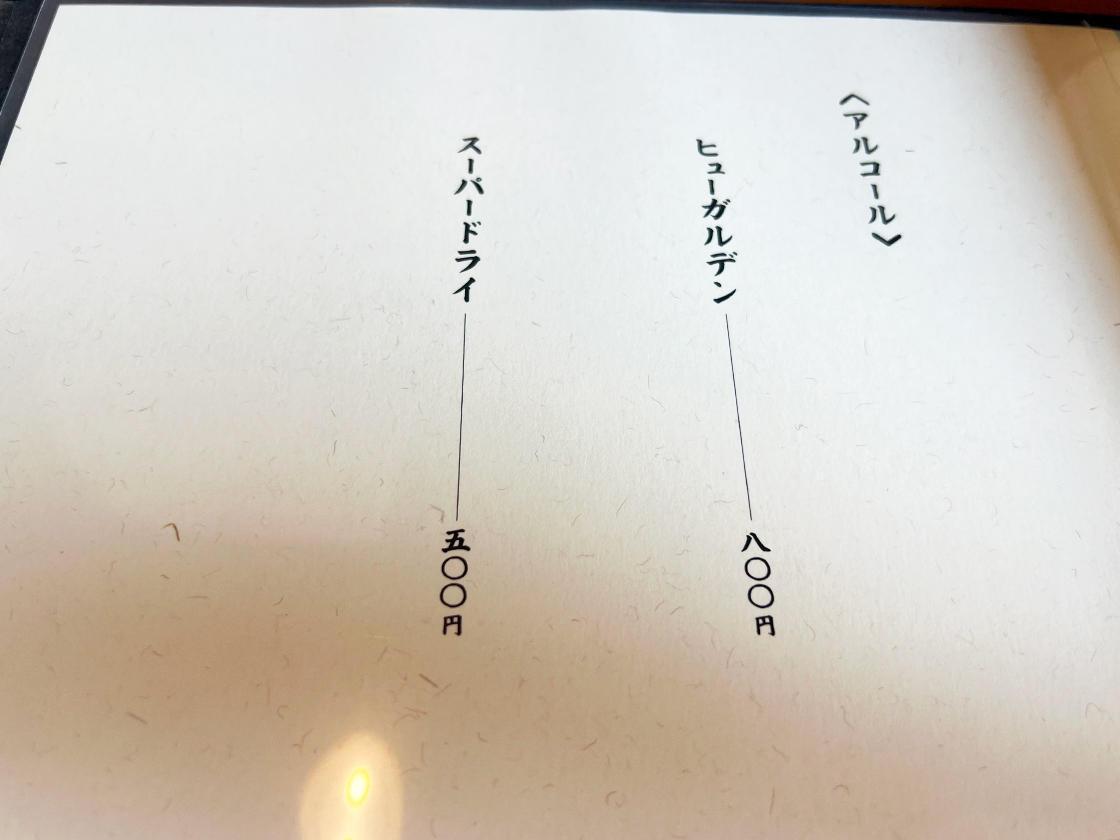 〈アルコール〉
ヒューガルデン 八〇〇円
スーパードライ 五〇〇円